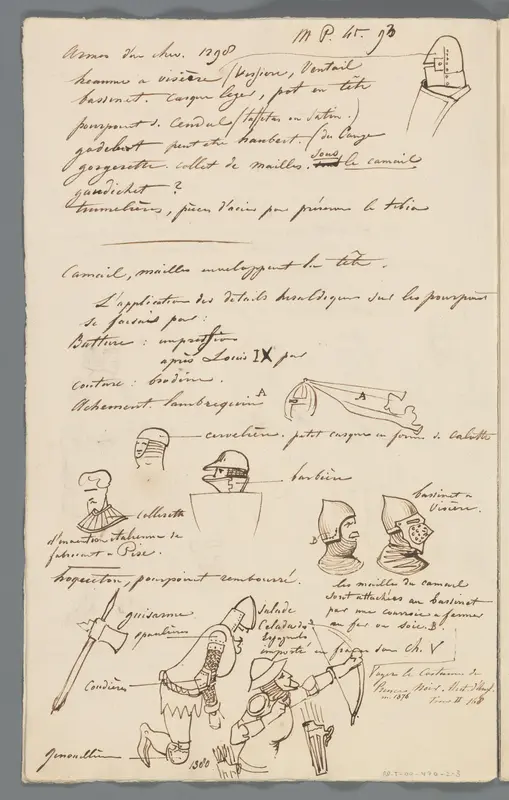 M P. 45-93
Armor d'un chev. 1298
heaume a visière (Versière, Ventail
bassinet. Casque léger, pot en tête
pourpoint de Cendal (taffetas ou Satin.)
godebert peut etre haubert. (du Cange
gorgerette. collet de mailles. sous le camail
gaudichet ?
trumelières, pièces d'acier pour préserver le tibia
Camail, mailles enveloppant la tête.
L'application des details heraldiques sur les pourpoints
se faisait par :
Batture : impression
après Louis IX par
couture : broderie.
Achement. Lambrequin A
A
cervelière. petit casque en forme de Calotte
barbière
collerette
d'invention italienne se
fabricant a Pise.
bassinet a
Visière.
B
les maille du camail
sont attachées au bassinet
par une courroie a fermer
au fer ou soie. B.
hoqueton, pourpoint rembourré.
guisarme
epaulières
Salade
Celada des
Espagnols
importé en france sous Ch. V
Coudières
Voyez le Costume du
Prince Noir.
en 1376
Tome II
genouillère
1300
RP-T-00-494-21B